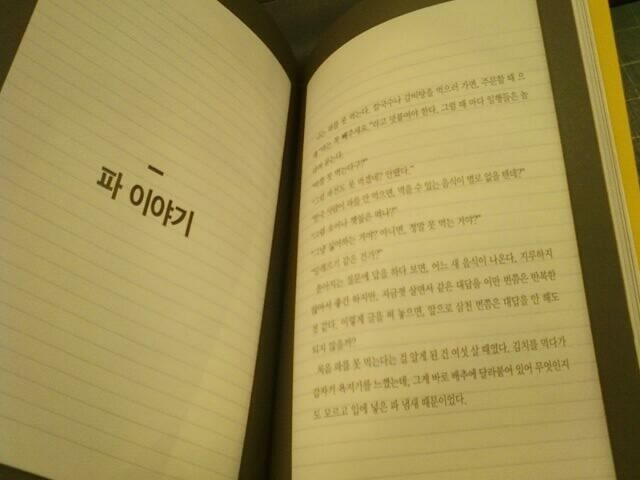 파 이야기
나는 파를 못 먹는다. 칼국수나 갈비탕을 먹으러 가면, 주문할 때 으
레 "파는 꼭 빼주세요."라고 덧붙여야 한다. 그럴 때 마다 일행들은 놀
라며 묻는다.
"파를 못 먹는다구?"
"그럼 파전도 못 먹겠네? 안됐다."
"한국 사람이 파를 안 먹으면, 먹을 수 있는 음식이 별로 없을 텐데?"
"그럼 양파나 깻잎은 먹나?"
"그냥 싫어하는 거야? 아니면, 정말 못 먹는 거야?"
"알레르기 같은 건가?"
쏟아지는 질문에 답을 하다 보면, 어느 새 음식이 나온다. 지루하지
않아서 좋긴 하지만, 지금껏 살면서 같은 대답을 이만 번쯤은 반복한
것 같다. 이렇게 글을 써 놓으면, 앞으로 삼천 번쯤은 대답을 안 해도
되지 않을까?
처음 파를 못 먹는다는 걸 알게 된 건 여섯 살 때였다. 김치를 먹다가
갑자기 욕지기를 느꼈는데, 그게 바로 배추에 달라붙어 있어 무엇인지
도 모르고 입에 넣은 파 냄새 때문이었다.